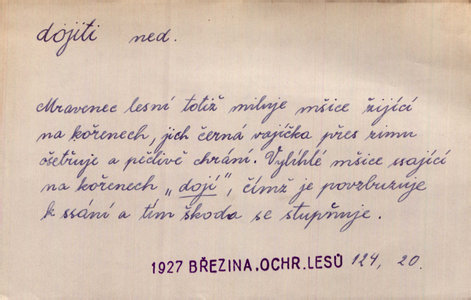 dojiti ned.
Mravenec lesní totiž miluje mšice žijící
na kořenech, jich černá vajíčka přes zimu
ošetřuje a pečlivě chrání. Vylíhlé mšice ssající
na kořenech „dojí", čímž je povzbuzuje
k ssání a tím škoda se stupňuje.
1927 BŘEZINA.OCHR.LESŮ 124, 20.